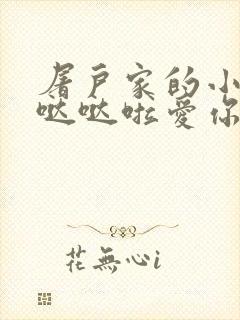 屠戶家的小
哒哒啦爱你
花無心i